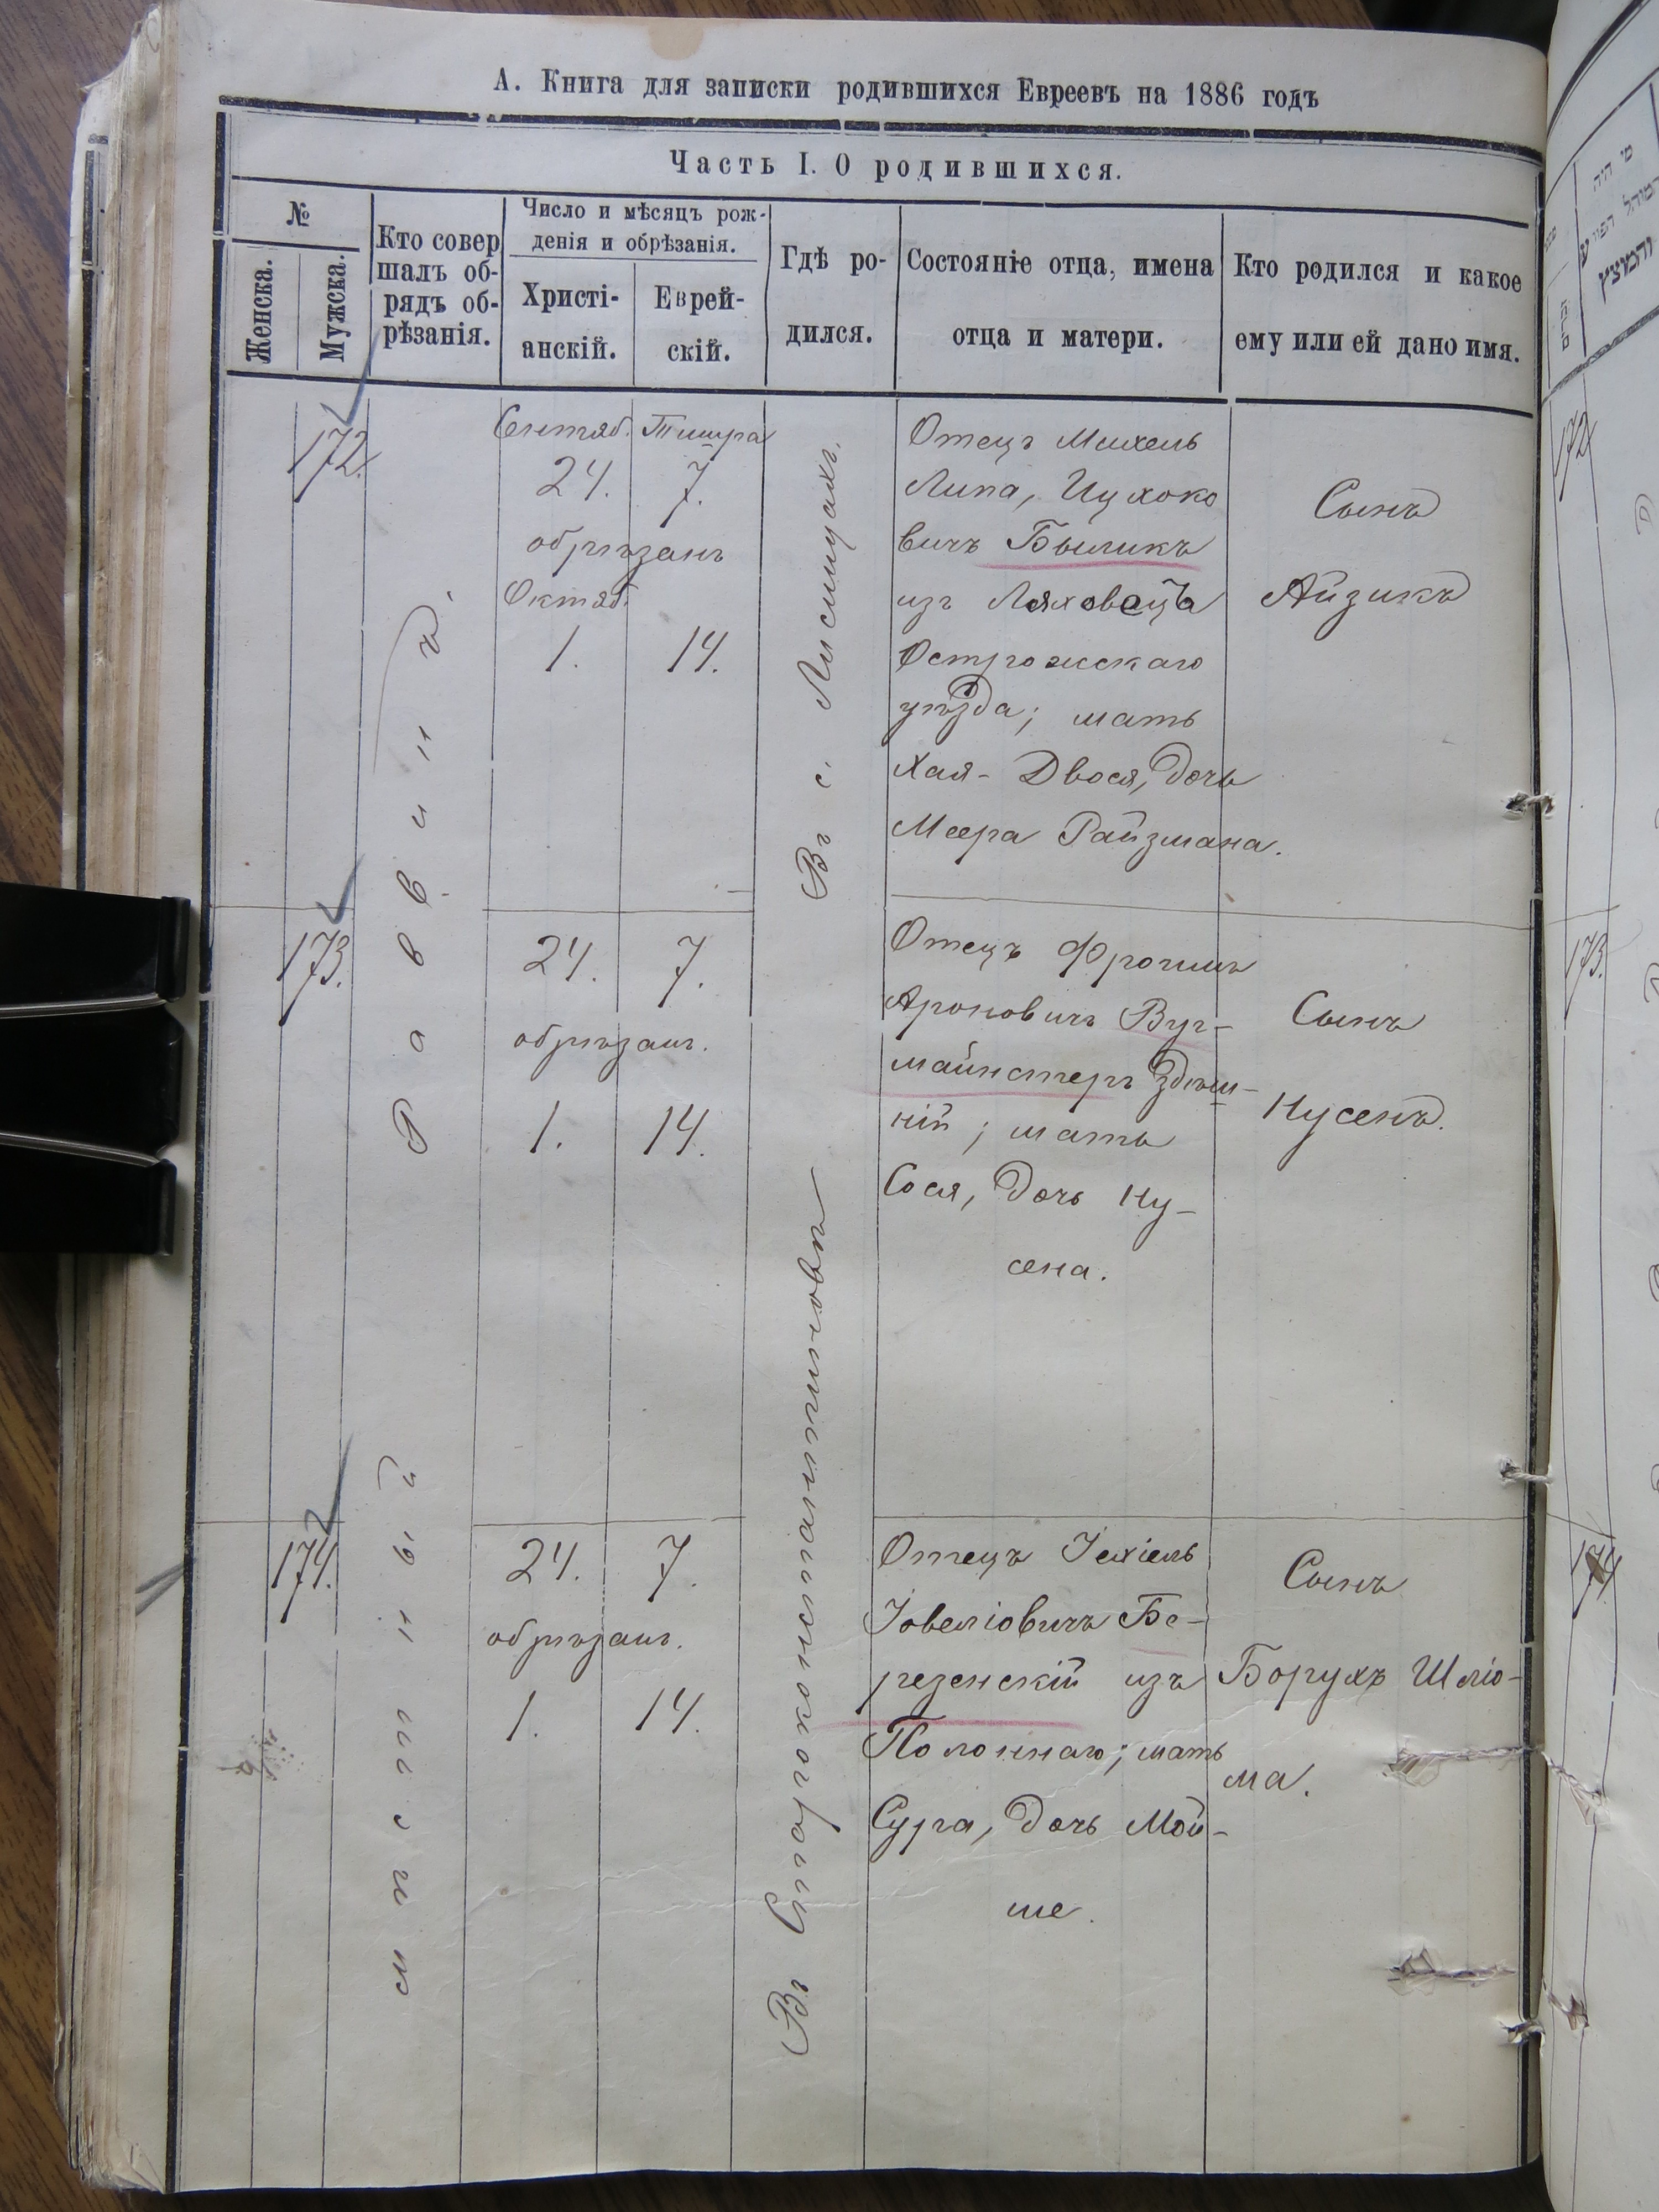 А. Книга для записки родившихся Евреевъ на 1886 годъ
Часть I. О родившихся.
№
Женска.
Мужска.
Кто совер
шалъ об-
рядъ об-
рѣзанія.
Число и мѣсяцъ рож-
денія и обрѣзанія.
Христі-
анскій.
Еврей-
скій.
Гдѣ ро-
дился.
Состояніе отца, имена
отца и матери.
Кто родился и какое
ему или ей дано имя.
172.
Сентяб. Тишра
24. 7.
обрѣзанъ
Октяб.
1. 14.
Въ с. Лисицахъ.
Отецъ Михель
Липа, Ицхоко
вичъ Быликъ
изъ Ляховецъ
Острожскаго
уѣзда; мать
Хая-Двося, дочь
Меера Райзмана.
Сынъ
Айзикъ
173.
24. 7.
обрѣзанъ.
1. 14.
Отецъ Фроимъ
Ароновичъ Вуг-
майнстеръ здѣш-
ній; мать
Сося, дочь Ну-
сена.
Сынъ
Нусенъ.
Въ Староконстантиновѣ
174.
24. 7.
обрѣзанъ.
1. 14.
Отецъ Іехіель
Іовеліовичъ Бе-
резенскій изъ
Полоннаго; мать
Сура, дочь Мой-
ше.
Сынъ
Борухъ Шліо-
ма.
Раввинъ
מי היה
המוהל
והמוצץ
172
173.
174